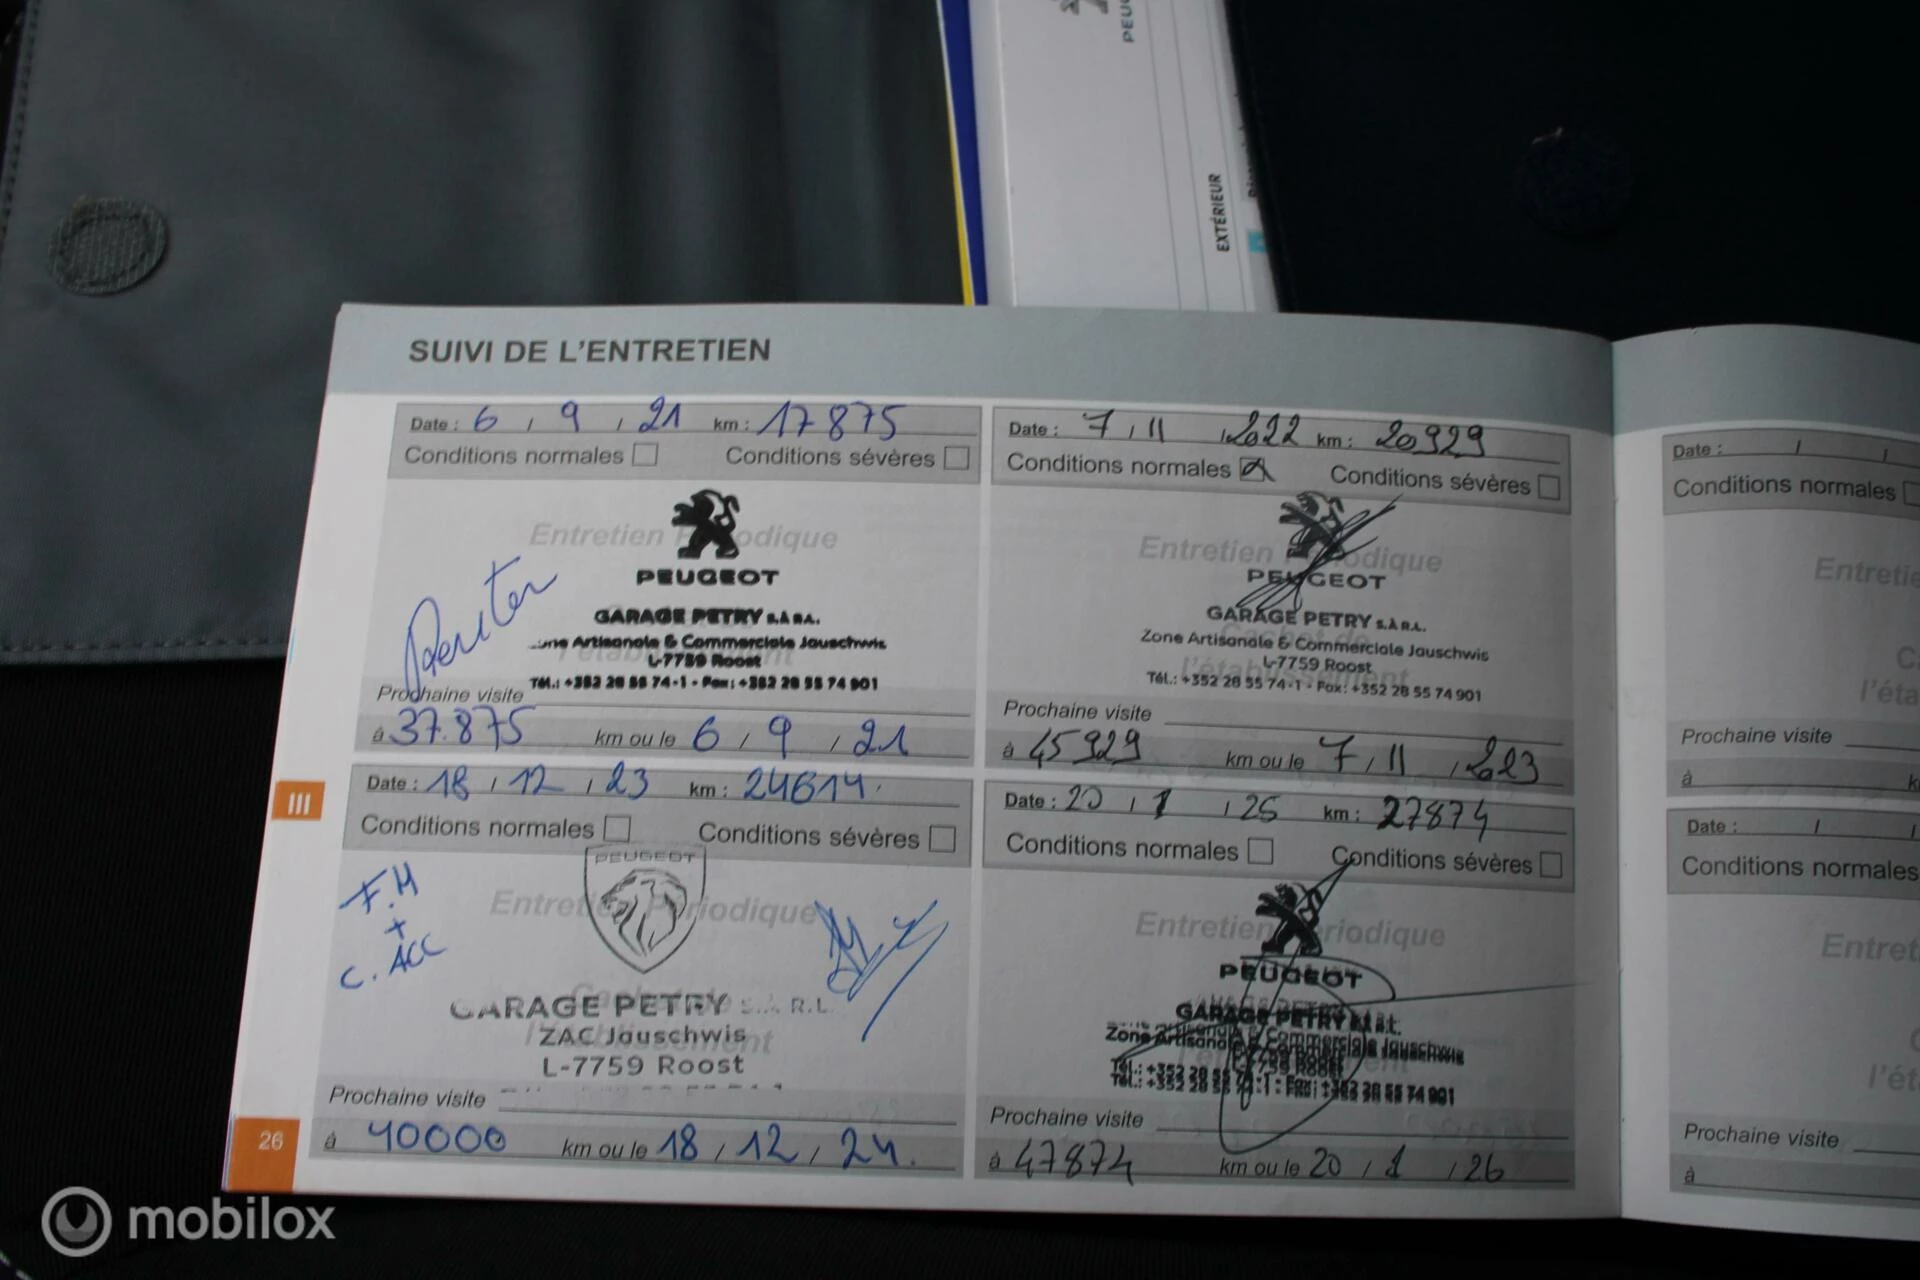 PEUG
EXTÉRIEUR
SUIVI DE L'ENTRETIEN
Date : 6 / 9 / 21 km : 17875
Conditions normales Conditions sévères
Entretien Périodique
PEUGEOT
GARAGE PETRY S.À R.L.
Zone Artisanale & Commerciale Jauschwis
L-7759 Roost
Tél.: +352 28 55 74-1 - Fax: +352 28 55 74 901
Prochaine visite
à 37.875 km ou le 6 / 9 / 21
Date : 7 / 11 / 2022 km : 20929
Conditions normales Conditions sévères
Entretien Périodique
PEUGEOT
GARAGE PETRY S.À R.L.
Zone Artisanale & Commerciale Jauschwis
L-7759 Roost
l'établissement
Tél.: +352 28 55 74-1 - Fax: +352 28 55 74 901
Prochaine visite
à 45929 km ou le 7 / 11 / 2023
III
Date : 18 / 12 / 23 km : 24614
Conditions normales Conditions sévères
F.M
+
C. ACC
PEUGEOT
Entretien Périodique
GARAGE PETRY S.À R.L.
ZAC Jauschwis
L-7759 Roost
Prochaine visite
à 40000 km ou le 18 / 12 / 24.
Date : 20 / 1 / 25 km : 27874
Conditions normales Conditions sévères
Entretien Périodique
PEUGEOT
GARAGE PETRY
Zone Artisanale & Commerciale Jauschwis
L-7759 Roost
Tél.: +352 28 55 74-1 - Fax: +352 28 55 74 901
Prochaine visite
à 47874 km ou le 20 / 1 / 26
26
Date : / /
Conditions normales
Entretie
Ca
l'éta
Prochaine visite
à k
Date : / /
Conditions normales
Entret
C
l'ét
Prochaine visite
à
mobilox